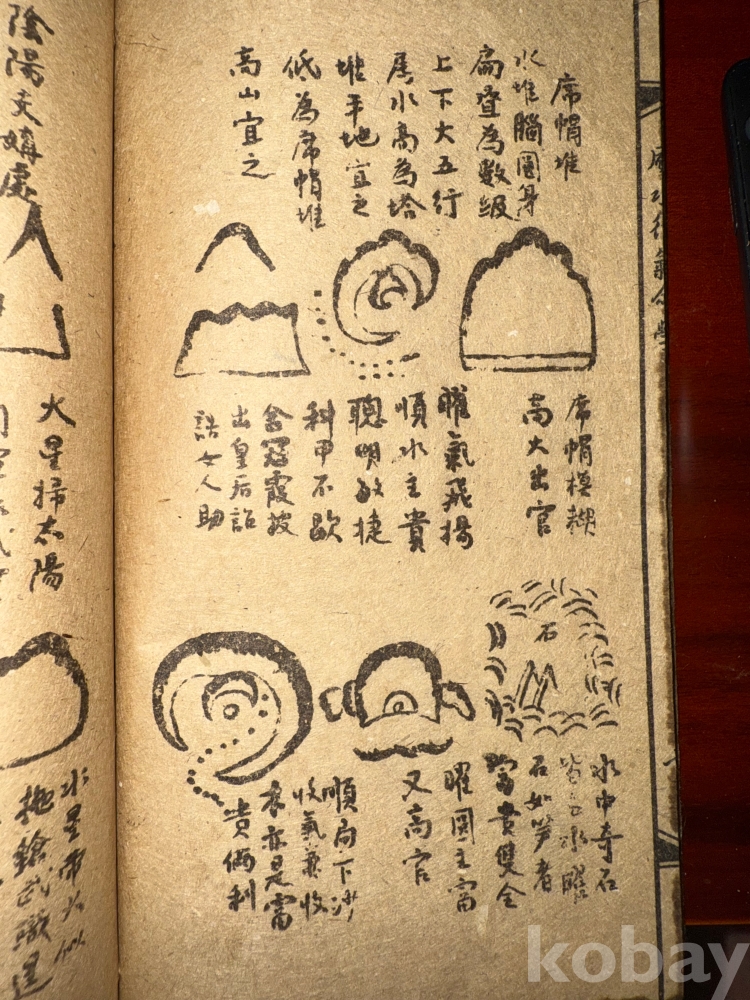 席帽堆
水堆腦圓身
扁登為數級
上下大五行
屬水高為塔
堆平地宜之
低為席帽堆
高山宜之
席帽模糊
高大出官
曜氣飛揚
順水主貴
聰明敏捷
科甲不歇
含冠霞披
出皇后詔
誥女人助
石
水中奇石
皆云水曜
石如笋者
富貴雙全
曜圓主富
又高官
順局下沙
收氣兼收
水亦是富
貴俩利
陰陽交媾處
火星掃太陽
水星帶火
拖鎗武職
kobay